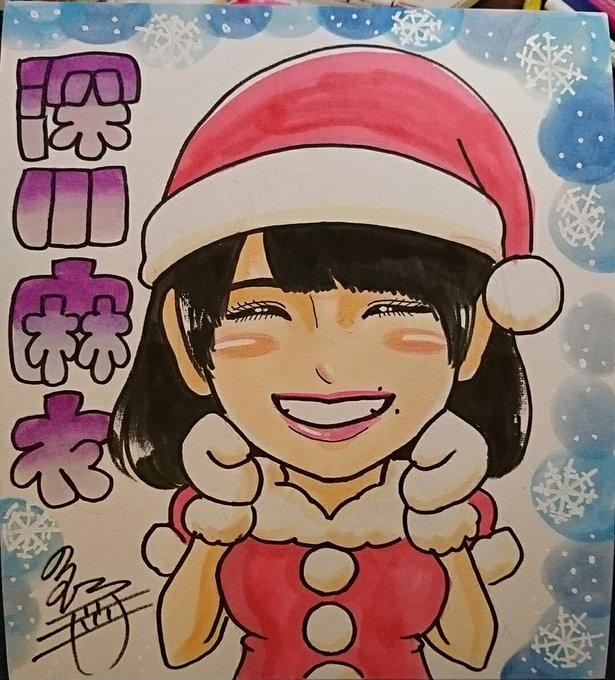 深川麻衣